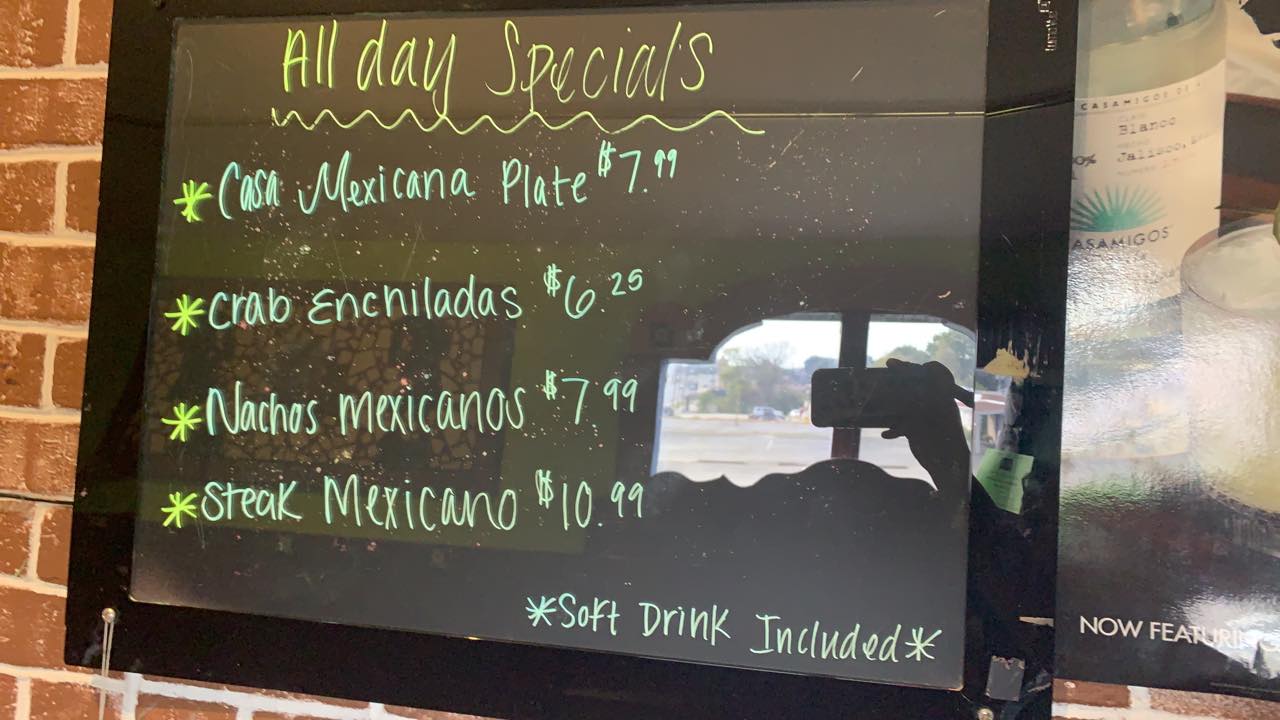 All day Specials
*Casa Mexicana Plate $7.99
*Crab Enchiladas $6.25
*Nachos mexicanos $7 99
*Steak Mexicano $10.99
*Soft Drink Included*
CASAMIGOS DE
Blanco
Jalisco,
ASAMIGOS
NOW FEATURI